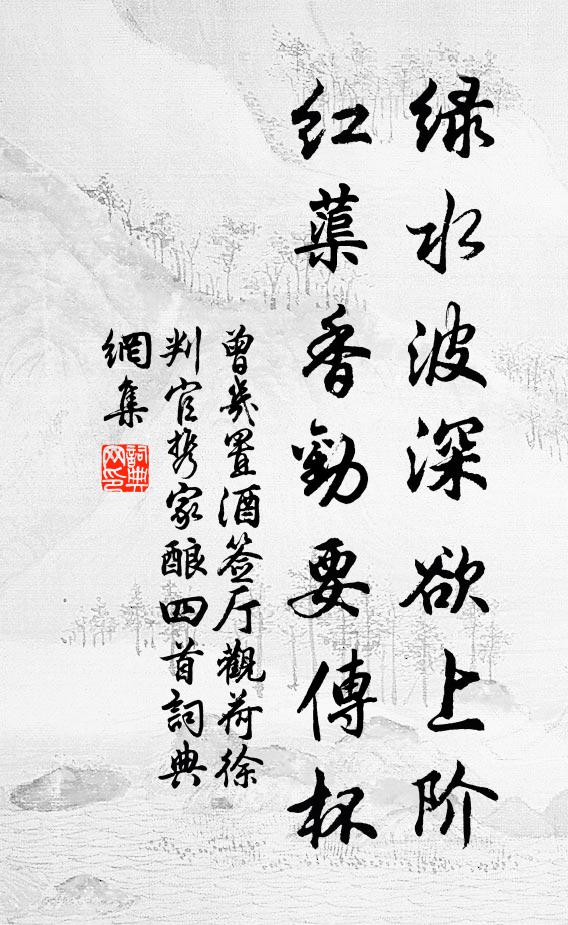 绿水波深欲上阶
红蕖香勸要傳杯
曾幾置酒签厅觀荷徐
判官携家酿四首詞典
網集
詞典
网印